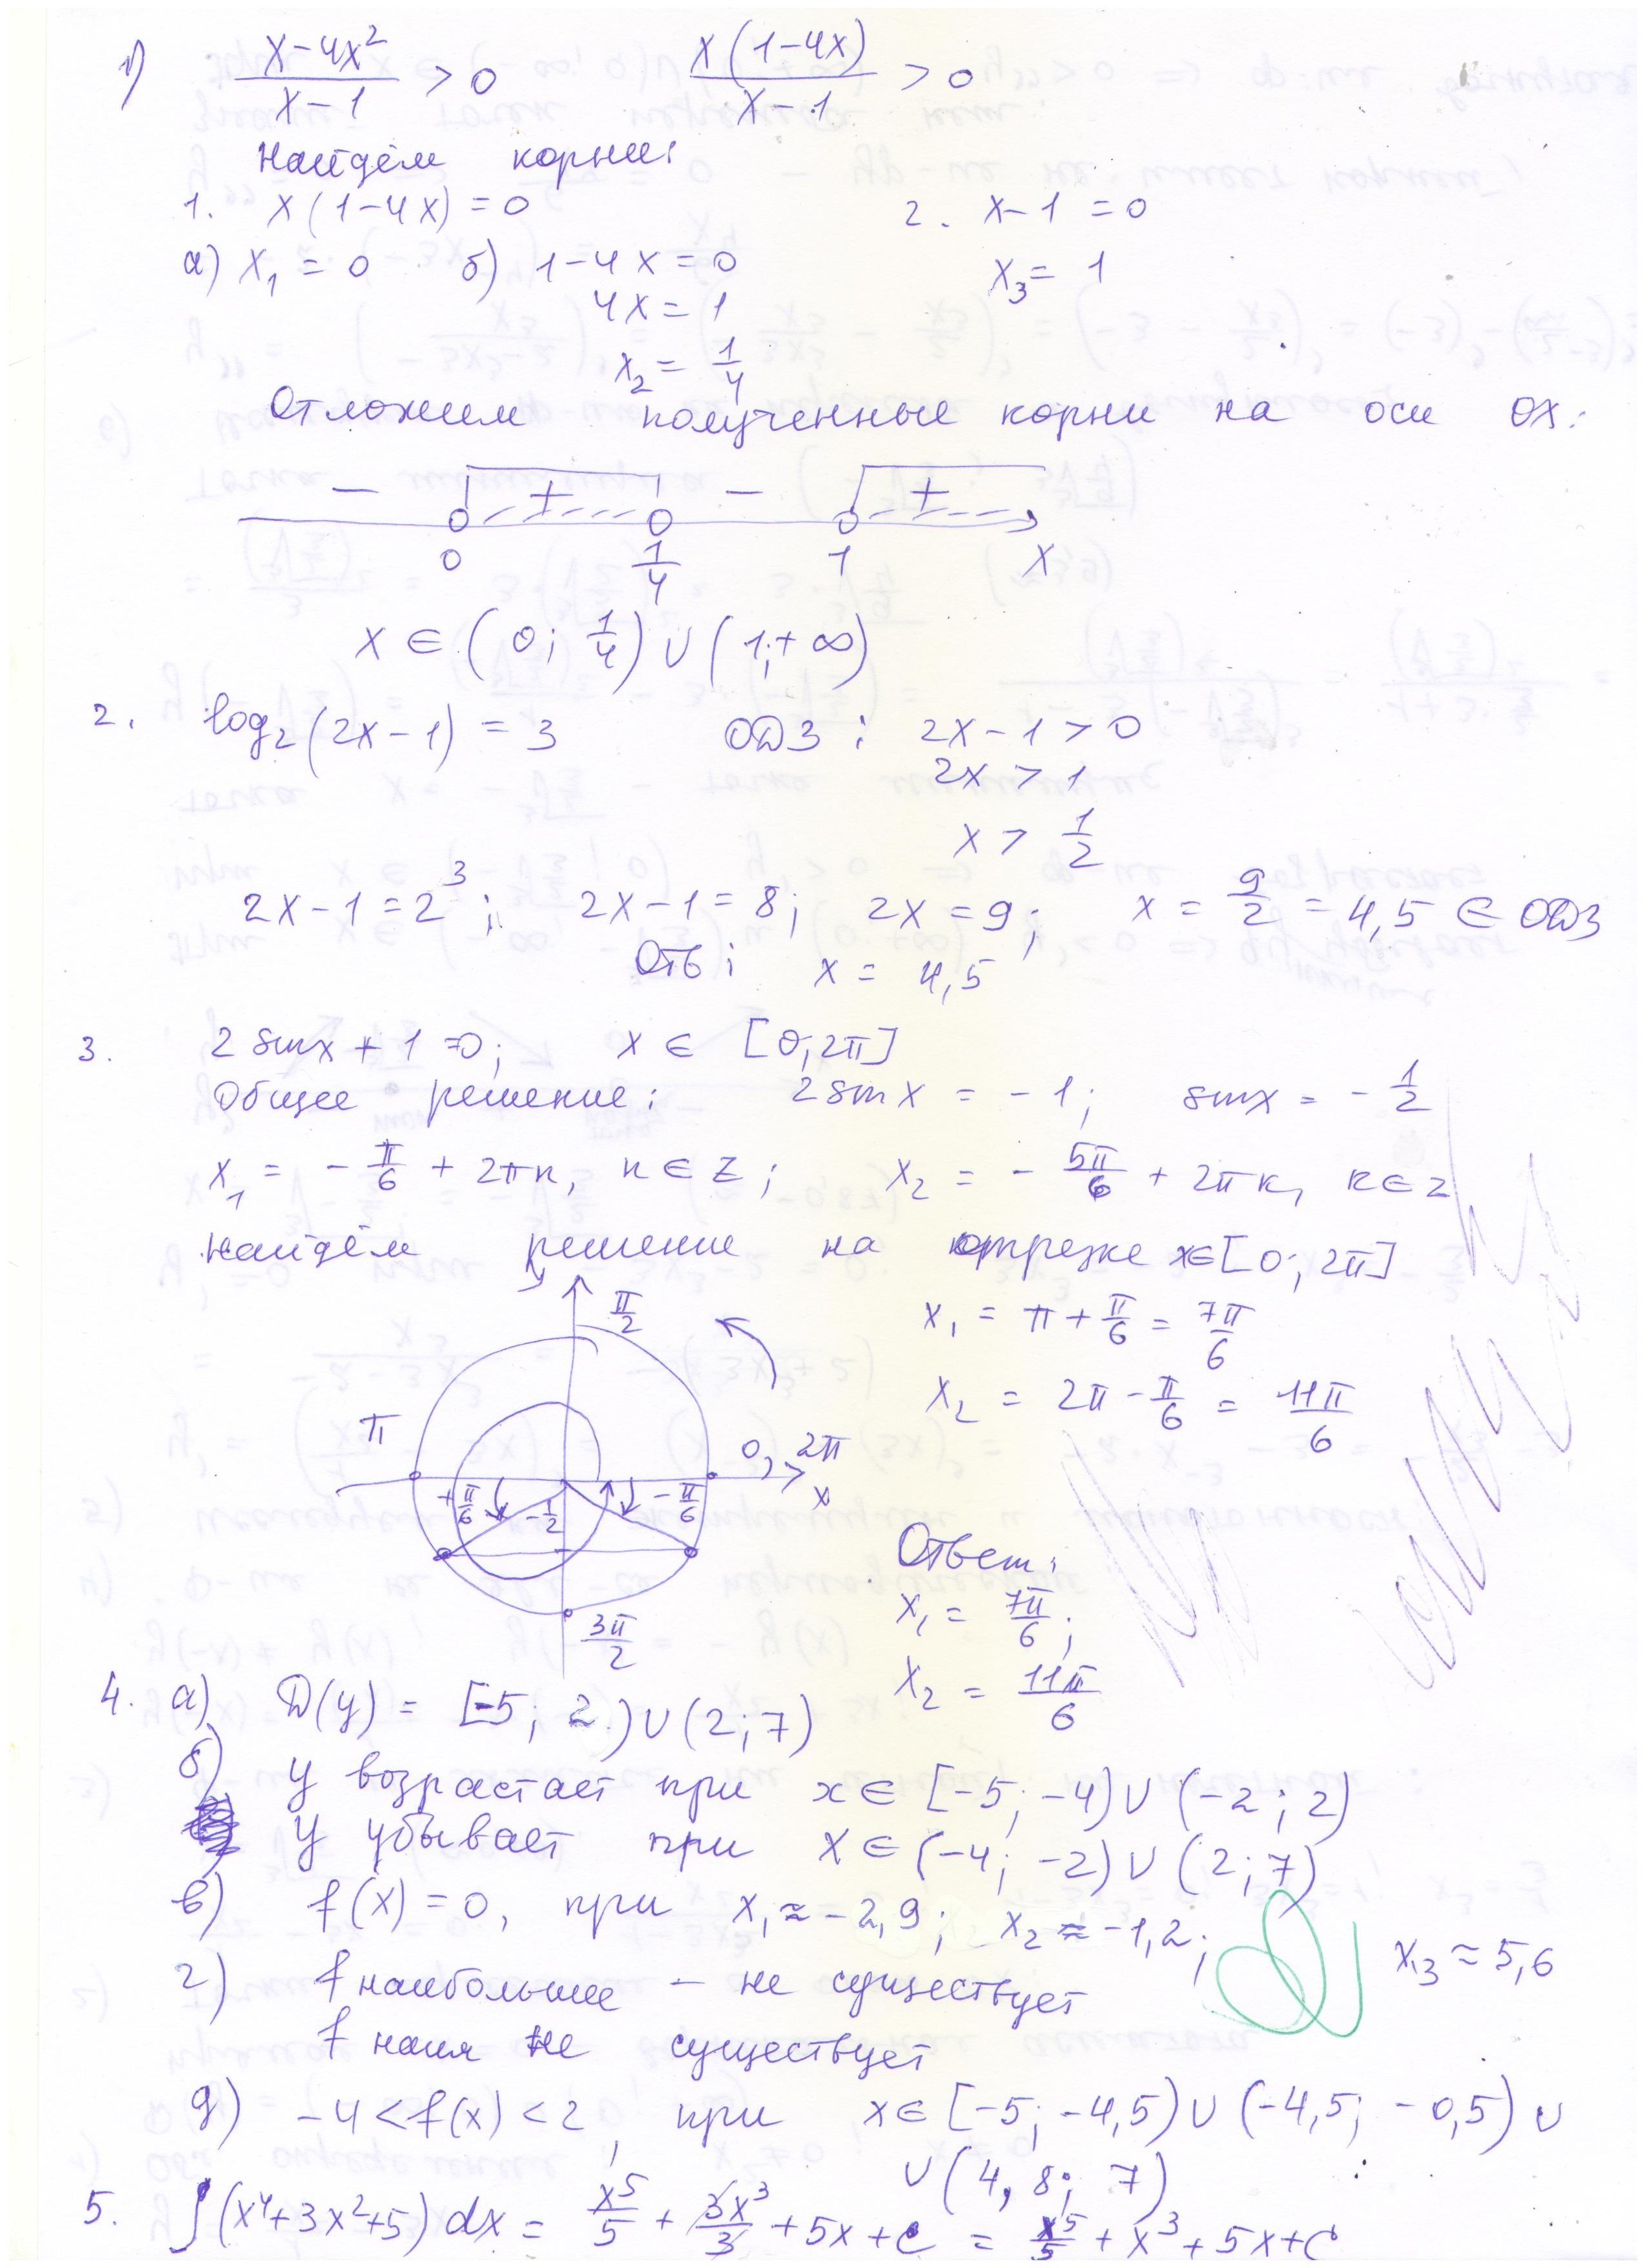 1) (x-4x²)/(x-1) > 0    x(1-4x)/(x-1) > 0
Найдём корни:
1. x(1-4x)=0    2. x-1=0
а) x₁ = 0  б) 1-4x=0    x₃ = 1
4x = 1
x₂ = 1/4
Отложим полученные корни на оси OX:
− + − +
0  1/4  1  X
x ∈ (0; 1/4) ∪ (1;+∞)
2. log₂(2x-1) = 3    ОДЗ: 2x-1 > 0
2x > 1
x > 1/2
2x-1=2³; 2x-1=8; 2x=9; x = 9/2 = 4,5 ∈ ОДЗ
Отв: x = 4,5
3. 2 sinx + 1 =0; x ∈ [0; 2π]
Общее решение: 2 sin x = -1; sinx = -1/2
x₁ = -π/6 + 2πn, n ∈ Z; x₂ = -5π/6 + 2πk, k ∈ z
Найдём решение на отрезке x∈[0; 2π]
y π/2
x₁ = π + π/6 = 7π/6
x₂ = 2π - π/6 = 11π/6
π  0, 2π
x
+π/6  -1/2  -π/6
3π/2
Ответ:
x₁ = 7π/6;
x₂ = 11π/6
4. а) D(y) = [-5; 2) ∪ (2; 7)
б) y возрастает при x ∈ [-5; -4) ∪ (-2; 2)
y убывает при x ∈ (-4; -2) ∪ (2; 7)
в) f(x) = 0, при x₁ ≈ -2,9; x₂ ≈ -1,2; x₃ ≈ 5,6
г) f наибольшее – не существует
f наим не существует
д) -4 < f(x) < 2, при x ∈ [-5; -4,5) ∪ (-4,5; -0,5) ∪
∪ (4,8; 7)
5. ∫(x⁴+3x²+5) dx = x⁵/5 + 3x³/3 + 5x + c = x⁵/5 + x³ + 5x + c